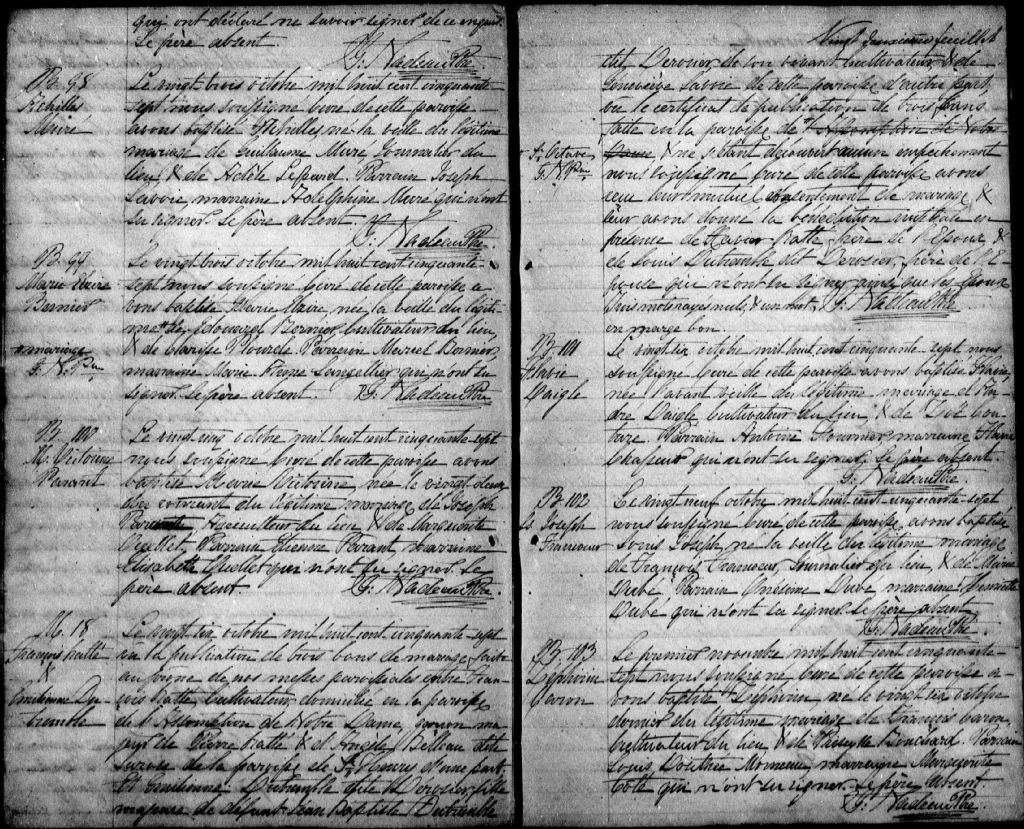 qui ont déclaré ne savoir signer de ce enquis
Le père absent
J: Nadeau Ptre.
B. 98
Achilles
Mure
Le vingt trois octobre mil huit cent cinquante
sept nous soussigné curé de cette paroisse
avons baptisé Achilles, né la veille du légitime
mariage de Guillaume Mure Journalier du
lieu & de Adèle Lepard. Parrain Joseph
Lavoie marraine Adelphine Mure qui n'ont
su signer Le père absent
J: Nadeau Ptre.
B. 99
Marie Claire
Bernier
Le vingt trois octobre mil huit cent cinquante-
sept nous soussigné curé de cette paroisse a-
vons baptisé Marie Claire, née la veille du légiti-
me de Edouard Bernier cultivateur du lieu,
& de Clarisse Plourde Parrain Marcel Bernier,
marraine Marie Langelier qui n'ont su
signer. Le père absent. J: Nadeau Ptre
+ mariage
J. N. Ptre
B. 100
M. Victoire
Parant
Le vingt cinq octobre mil huit cent cinquante sept
nous soussigné curé de cette paroisse avons
baptisé Marie Victoire, née le vingt deux
du courant du légitime mariage de Joseph
Parant Agriculteur du lieu & de Marguerite
Ouellet Parrain Etienne Parant marraine
Elisabeth Ouellet qui n'ont su signer. Le
père absent. J: Nadeau Ptre.
M. 18
François Ratté
&
Emilienne Du-
tremble
Le vingt six octobre mil huit cent cinquante-sept
vu la publication de trois bans de mariage faite
au prône de nos messes paroissiales entre Fran-
çois Ratté, cultivateur, domicilié en la paroisse
de l'Assomption de Notre Dame, garçon ma-
jeur de Pierre Ratté & d'Angèle Bilodeau dite
de la paroisse de St. d'une part
Et Emilienne Dutremble dite Derosier fille
majeure de défunt Jean Baptiste Dutremble
Vingt deuxième feuillet
dit Derosier de son vivant cultivateur & de
Geneviève Lavoie de cette paroisse d'autre part
vu le certificat de publication de trois bans
faite en la paroisse de l'Assomption de Notre
Dame & ne s'étant découvert aucun empêchement
+ St. Octave
J. N. Ptre
nous soussigné curé de cette paroisse avons
reçu leur mutuel consentement de mariage &
leur avons donné la bénédiction nuptiale en
présence de Xavier Ratté, frère de l'Epoux, &
de Louis Dutremble dit Derosier, frère de l'E-
pouse qui n'ont su signer ainsi que les Epoux
trois mots rayés nuls, & un mot J: Nadeau Ptre
en marge bon.
B. 101
Flavie
Daigle
Le vingt six octobre mil huit cent cinquante-sept nous
soussigné curé de cette paroisse avons baptisé Flavie
née l'avant veille du légitime mariage d'An-
dré Daigle Cultivateur du lieu, & de Zoé Cou-
ture. Parrain Antoine Fournier marraine Flavie
Chasseur qui n'ont su signer, Le père absent.
J: Nadeau Ptre.
B. 102
Ls Joseph
Francoeur
Le vingt neuf octobre mil huit cent cinquante-sept
nous soussigné curé de cette paroisse avons baptisé
Louis Joseph, né la veille du légitime mariage
de François Francoeur, Journalier du lieu, & de Marie
Dubé Parrain Onésime Dubé, marraine Henriette
Dubé qui n'ont su signer Le père absent
J: Nadeau Ptre.
B. 103
Zéphirin
Caron
Le premier novembre mil huit cent cinquante-
sept nous soussigné curé de cette paroisse a-
vons baptisé Zéphirin né le vingt six octobre
dernier du légitime mariage de François Caron,
cultivateur du lieu & de Bouchard. Parrain
Louis Morneau, marraine Marguerite
Coté qui n'ont su signer. Le père absent.
J: Nadeau Ptre.